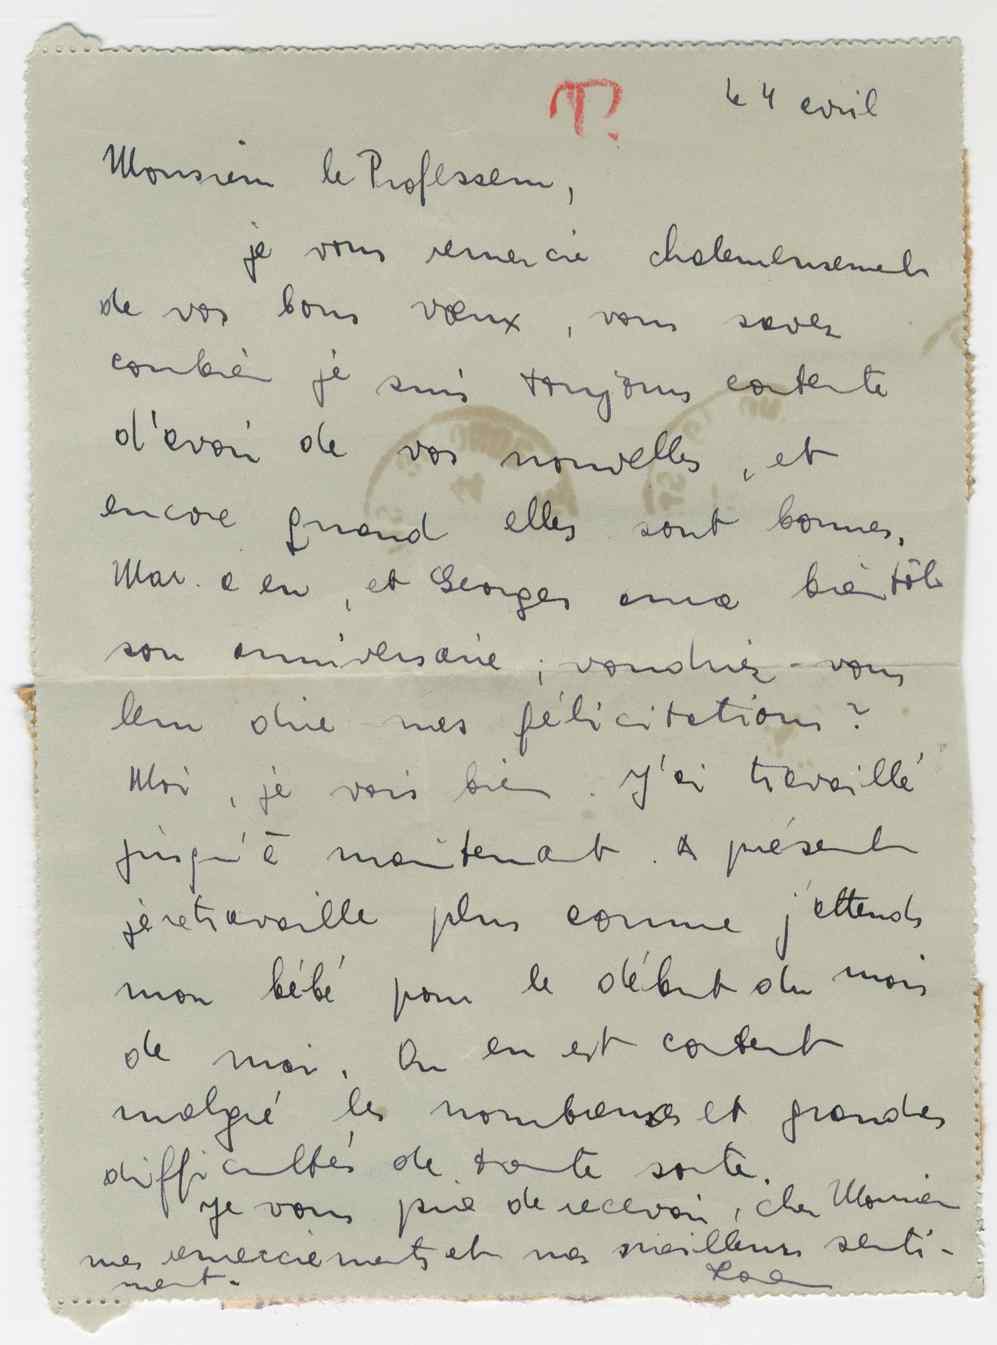 T?
le 4 avril
Monsieur le Professeur,
je vous remercie chaleureusement
de vos bons vœux, vous savez
combien je suis toujours contente
d'avoir de vos nouvelles, et
encore quand elles sont bonnes.
et Georges aura bientôt
son anniversaire ; voudriez-vous
leur dire mes félicitations ?
Moi, je vais bien. J'ai travaillé
jusqu'à maintenant. A présent
je ne travaille plus comme j'attends
mon bébé pour le début du mois
de mai. On en est content
malgré les nombreuses et grandes
difficultés de toute sorte.
Je vous prie de recevoir, cher Monsieur
mes remerciements et mes meilleurs senti-
ment.